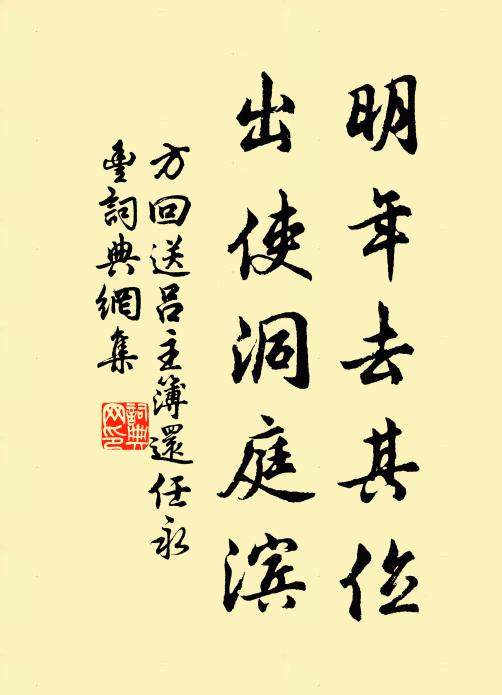 明年去其位
出使洞庭滨
方回送呂主簿還任永
豐詞典網集
詞典
网印